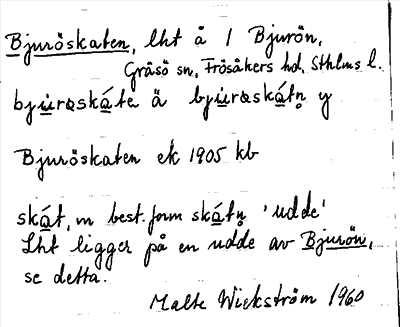 Bjuröskaten, lht å / Bjurön,
Gräsö sn, Frösåkers hd, Sthlms l.
bju̲rɷská̲te ä bju̲rɷská̲tṇ y
Bjuröskaten ek 1905 kb
ská̲t, m best. form ská̲tṇ 'udde'
Lht ligger på en udde av Bjurön,
se detta.
Malte Wickström 1960